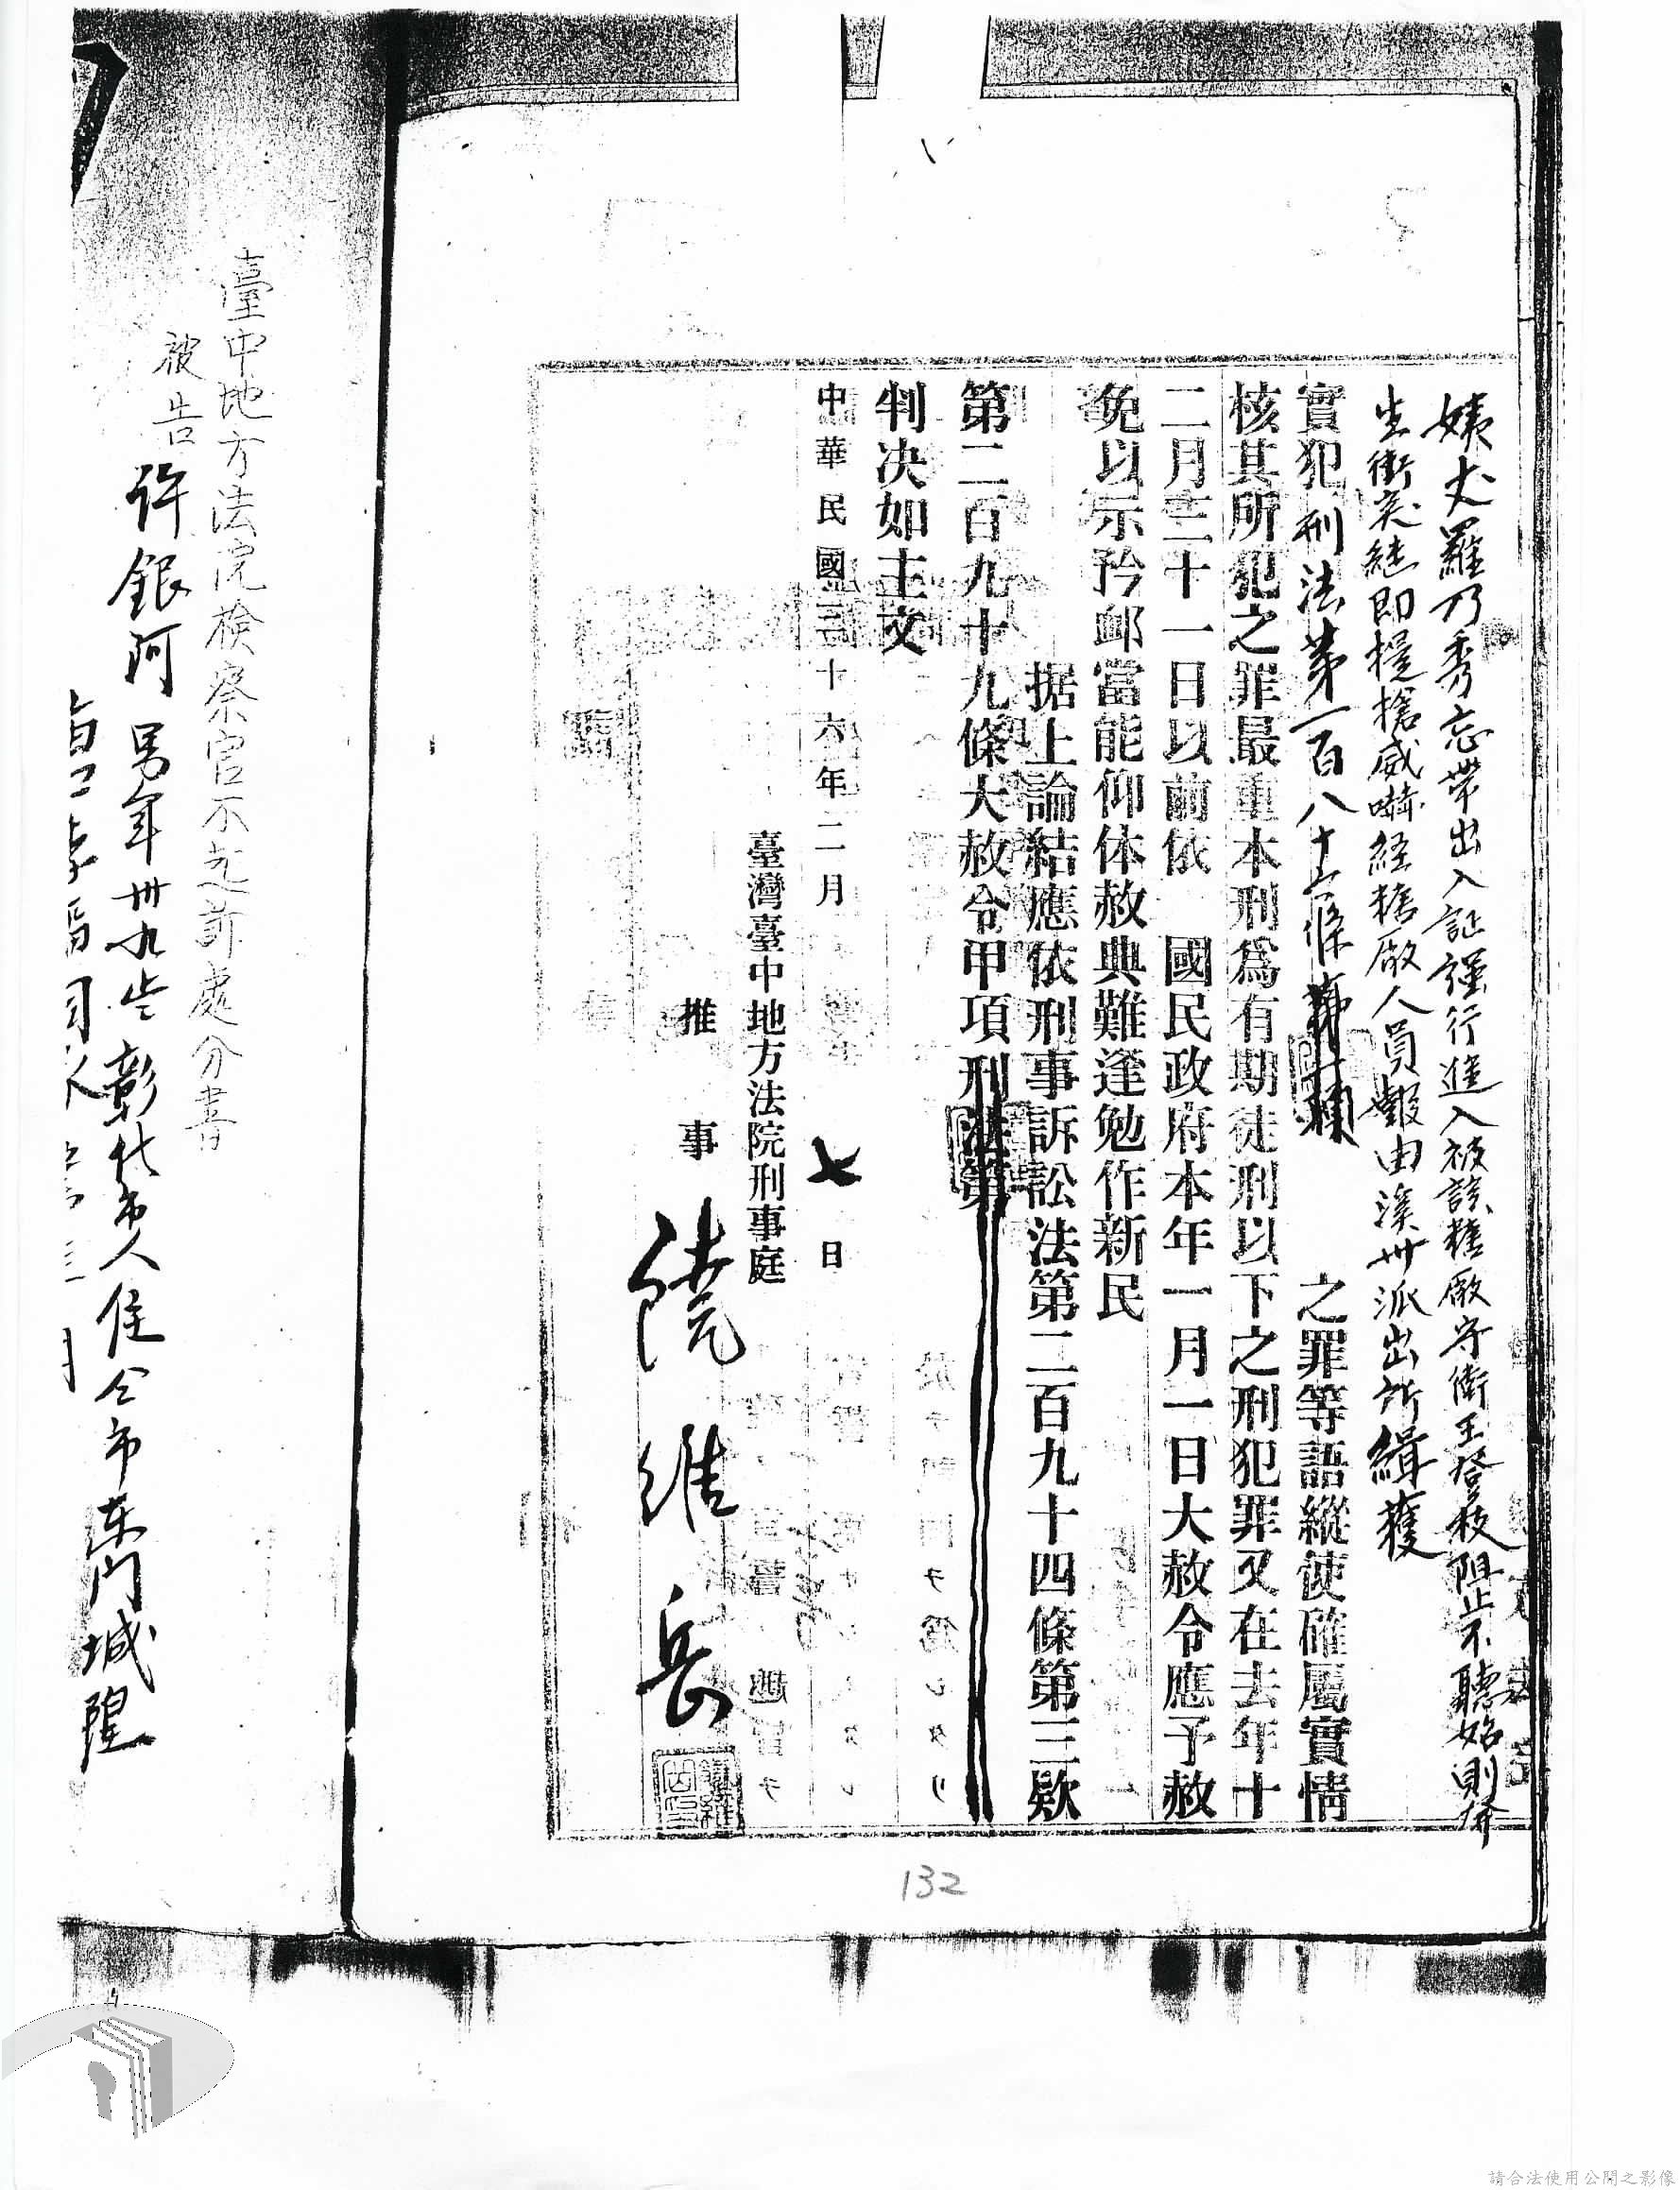 姨丈羅乃秀忘帶出入証謹行進入被該糖廠守衛王登枝阻止不聽始則發
生衝突繼即提槍威嚇経糖廠人員報由溪州派出所緝獲
實犯刑法第一百八十六條 之罪等語縱使確屬實情
核其所犯之罪最重本刑爲有期徒刑以下之刑犯罪又在去年十
二月三十一日以前依 國民政府本年一月一日大赦令應予赦
免以示矜邮當能仰体赦典難逢勉作新民
据上論結應依刑事訴訟法第二百九十四條第三欵
第二百九十九條大赦令甲項刑法第
判决如主文
中華民國三十六年二月 七 日
臺灣臺中地方法院刑事庭
推事 饒維岳
臺中地方法院檢察官不起訴處分書
被告 許銀河 男年卅九岁 彰化市人住仝市东门城隍
132
請合法使用公開之影像